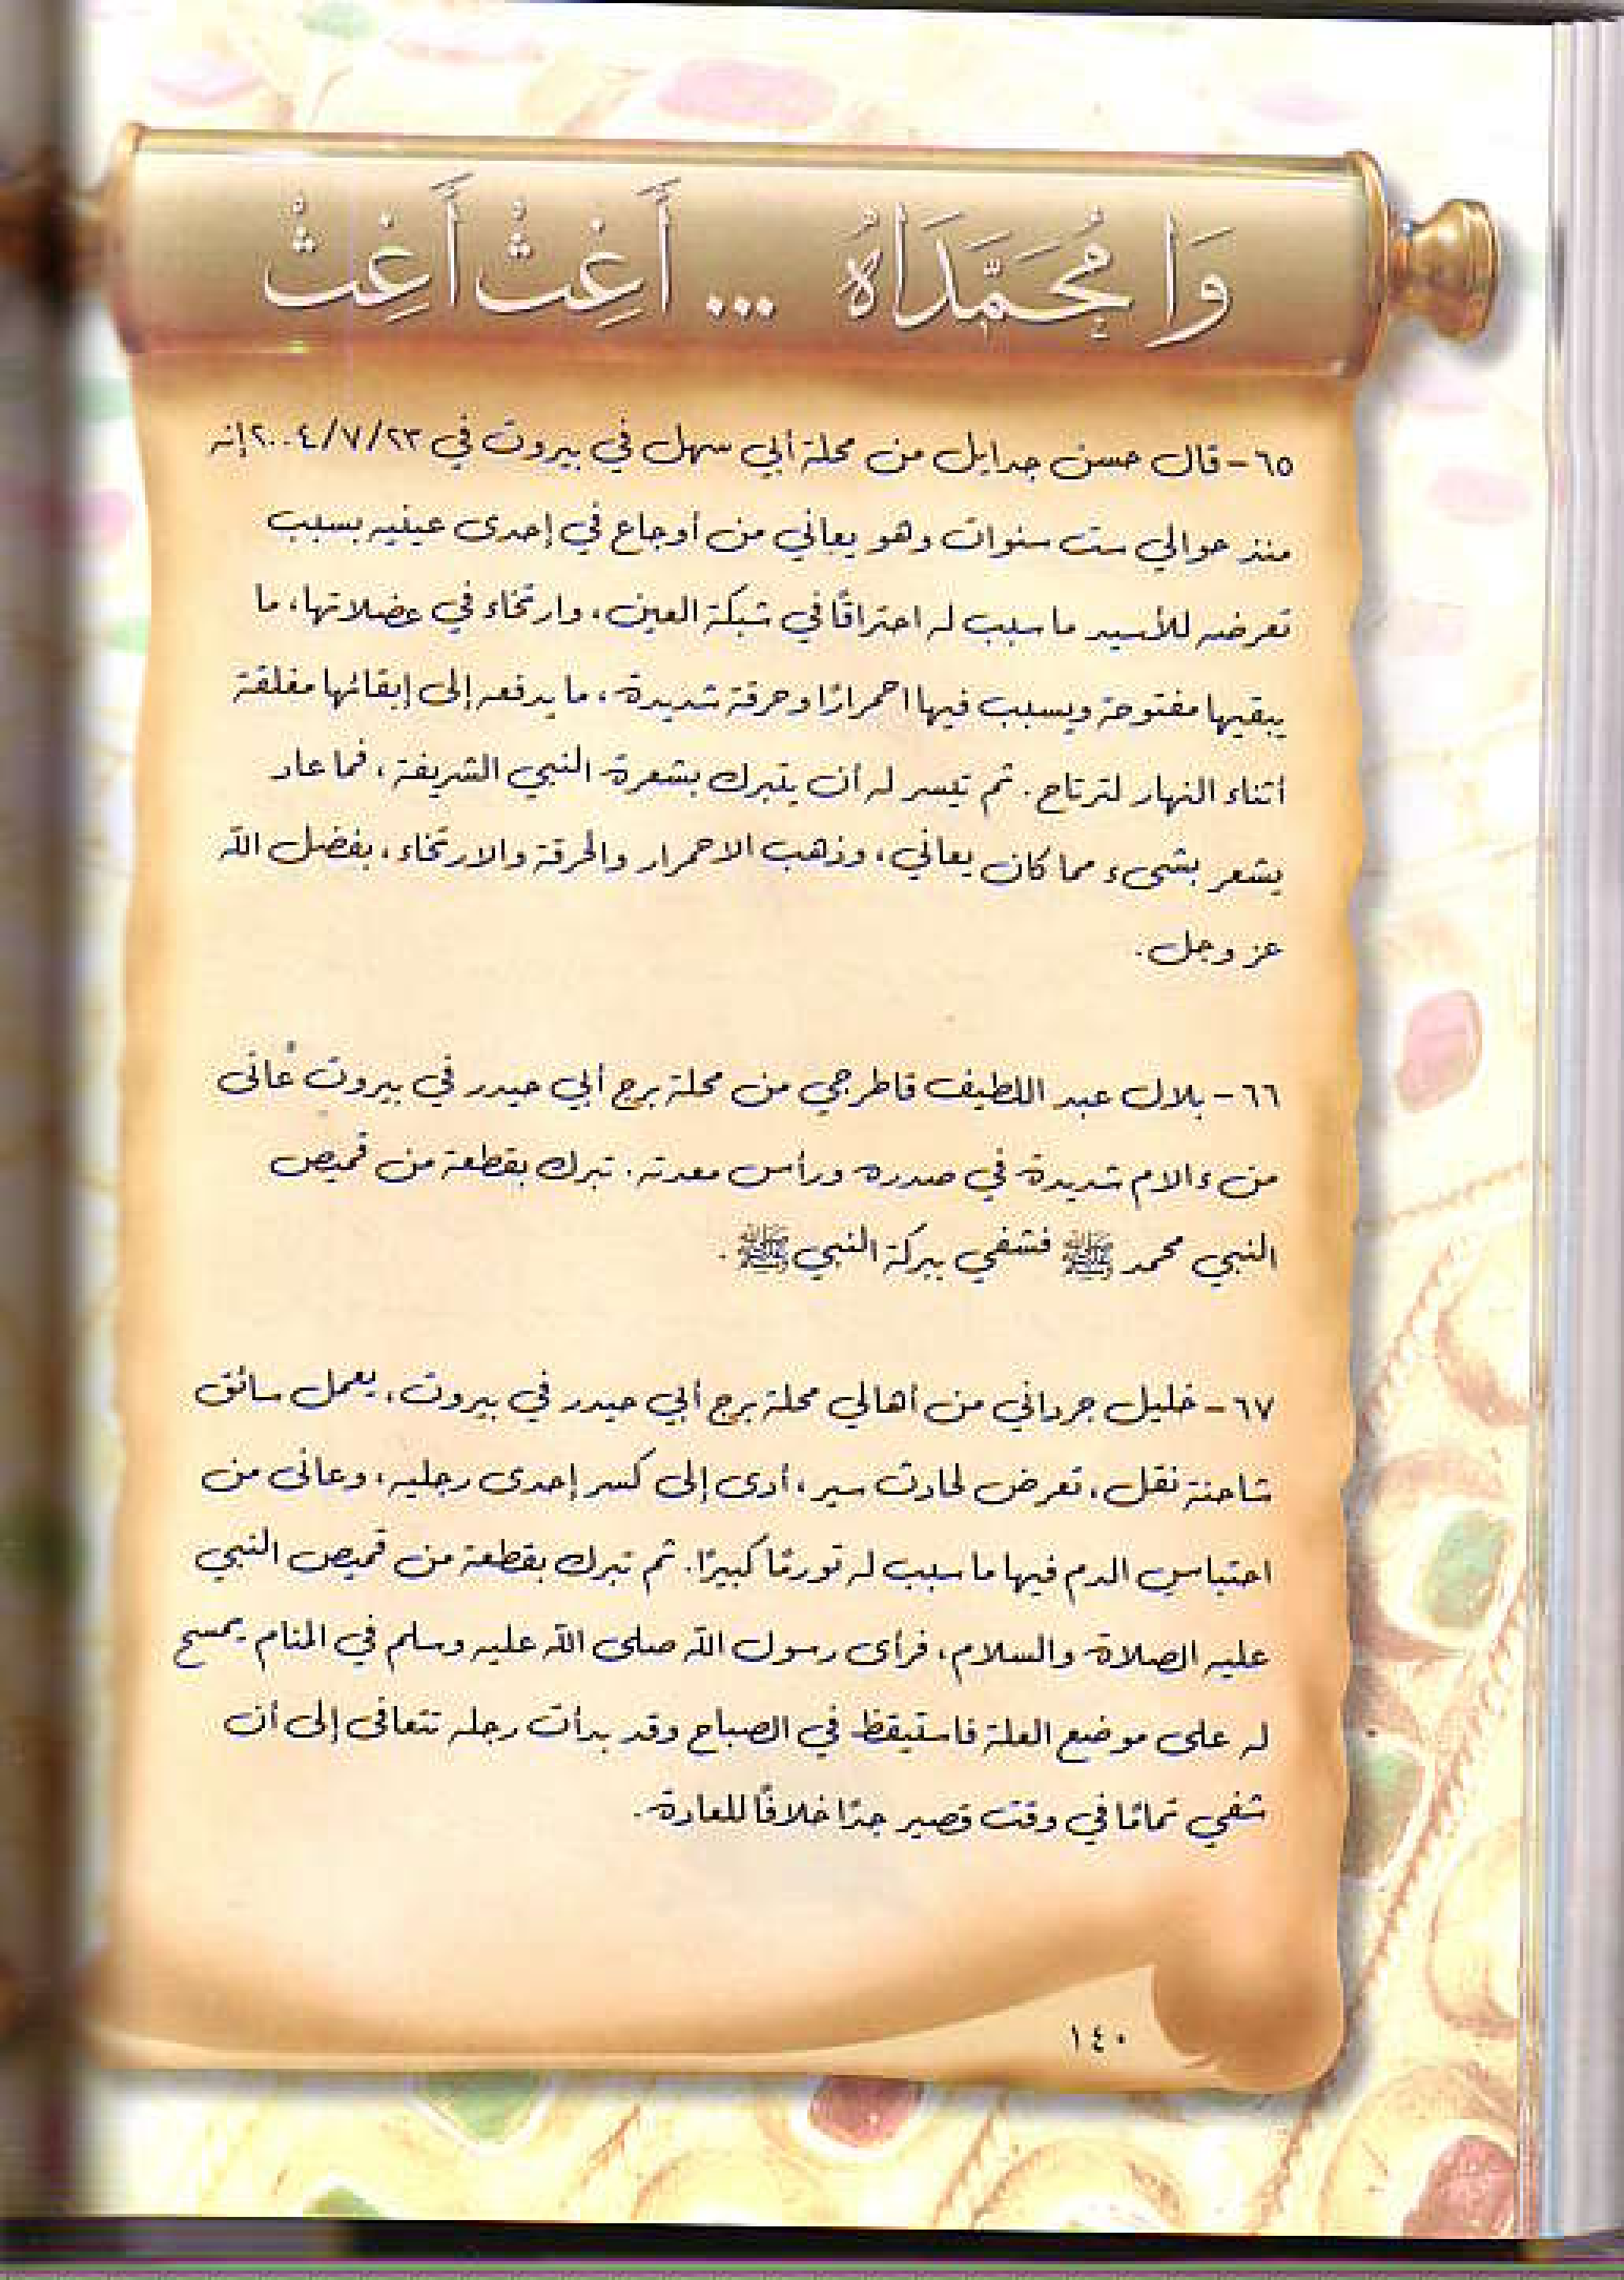 وَا مُحَمَّدَاهُ ... أَغِثْ أَغِثْ
٦٥- قال حسن جدايل من محلة أبي سهل في بيروت في ٢٠٠٤/٧/٢٣ إنه
منذ حوالي ست سنوات وهو يعاني من أوجاع في إحدى عينيه بسبب
تعرضه للأسيد ما سبب له احتراقًا في شبكة العين، وارتخاء في عضلاتها، ما
يبقيها مفتوحة ويسبب فيها احمرارًا وحرقة شديدة، ما يدفعه إلى إبقائها مغلقة
أثناء النهار لترتاح. ثم تيسر له أن يتبرك بشعرة النبي الشريفة، فما عاد
يشعر بشىء مما كان يعاني، وذهب الاحمرار والحرقة والارتخاء، بفضل الله
عز وجل.
٦٦- بلال عبد اللطيف قاطرجي من محلة برج أبي حيدر في بيروت عانى
من ءالام شديدة في صدره ورأس معدته. تبرك بقطعة من قميص
النبي محمد ﷺ فشفي ببركة النبي ﷺ.
٦٧- خليل جرداني من أهالي محلة برج أبي حيدر في بيروت، يعمل سائق
شاحنة نقل، تعرض لحادث سير، أدى إلى كسر إحدى رجليه، وعانى من
احتباس الدم فيها ما سبب له تورمًا كبيرًا. ثم تبرك بقطعة من قميص النبي
عليه الصلاة والسلام، فرأى رسول الله صلى الله عليه وسلم في المنام يمسح
له على موضع العلة فاستيقظ في الصباح وقد بدأت رجله تتعافى إلى أن
شفي تمامًا في وقت قصير جدًا خلافًا للعادة.
١٤٠